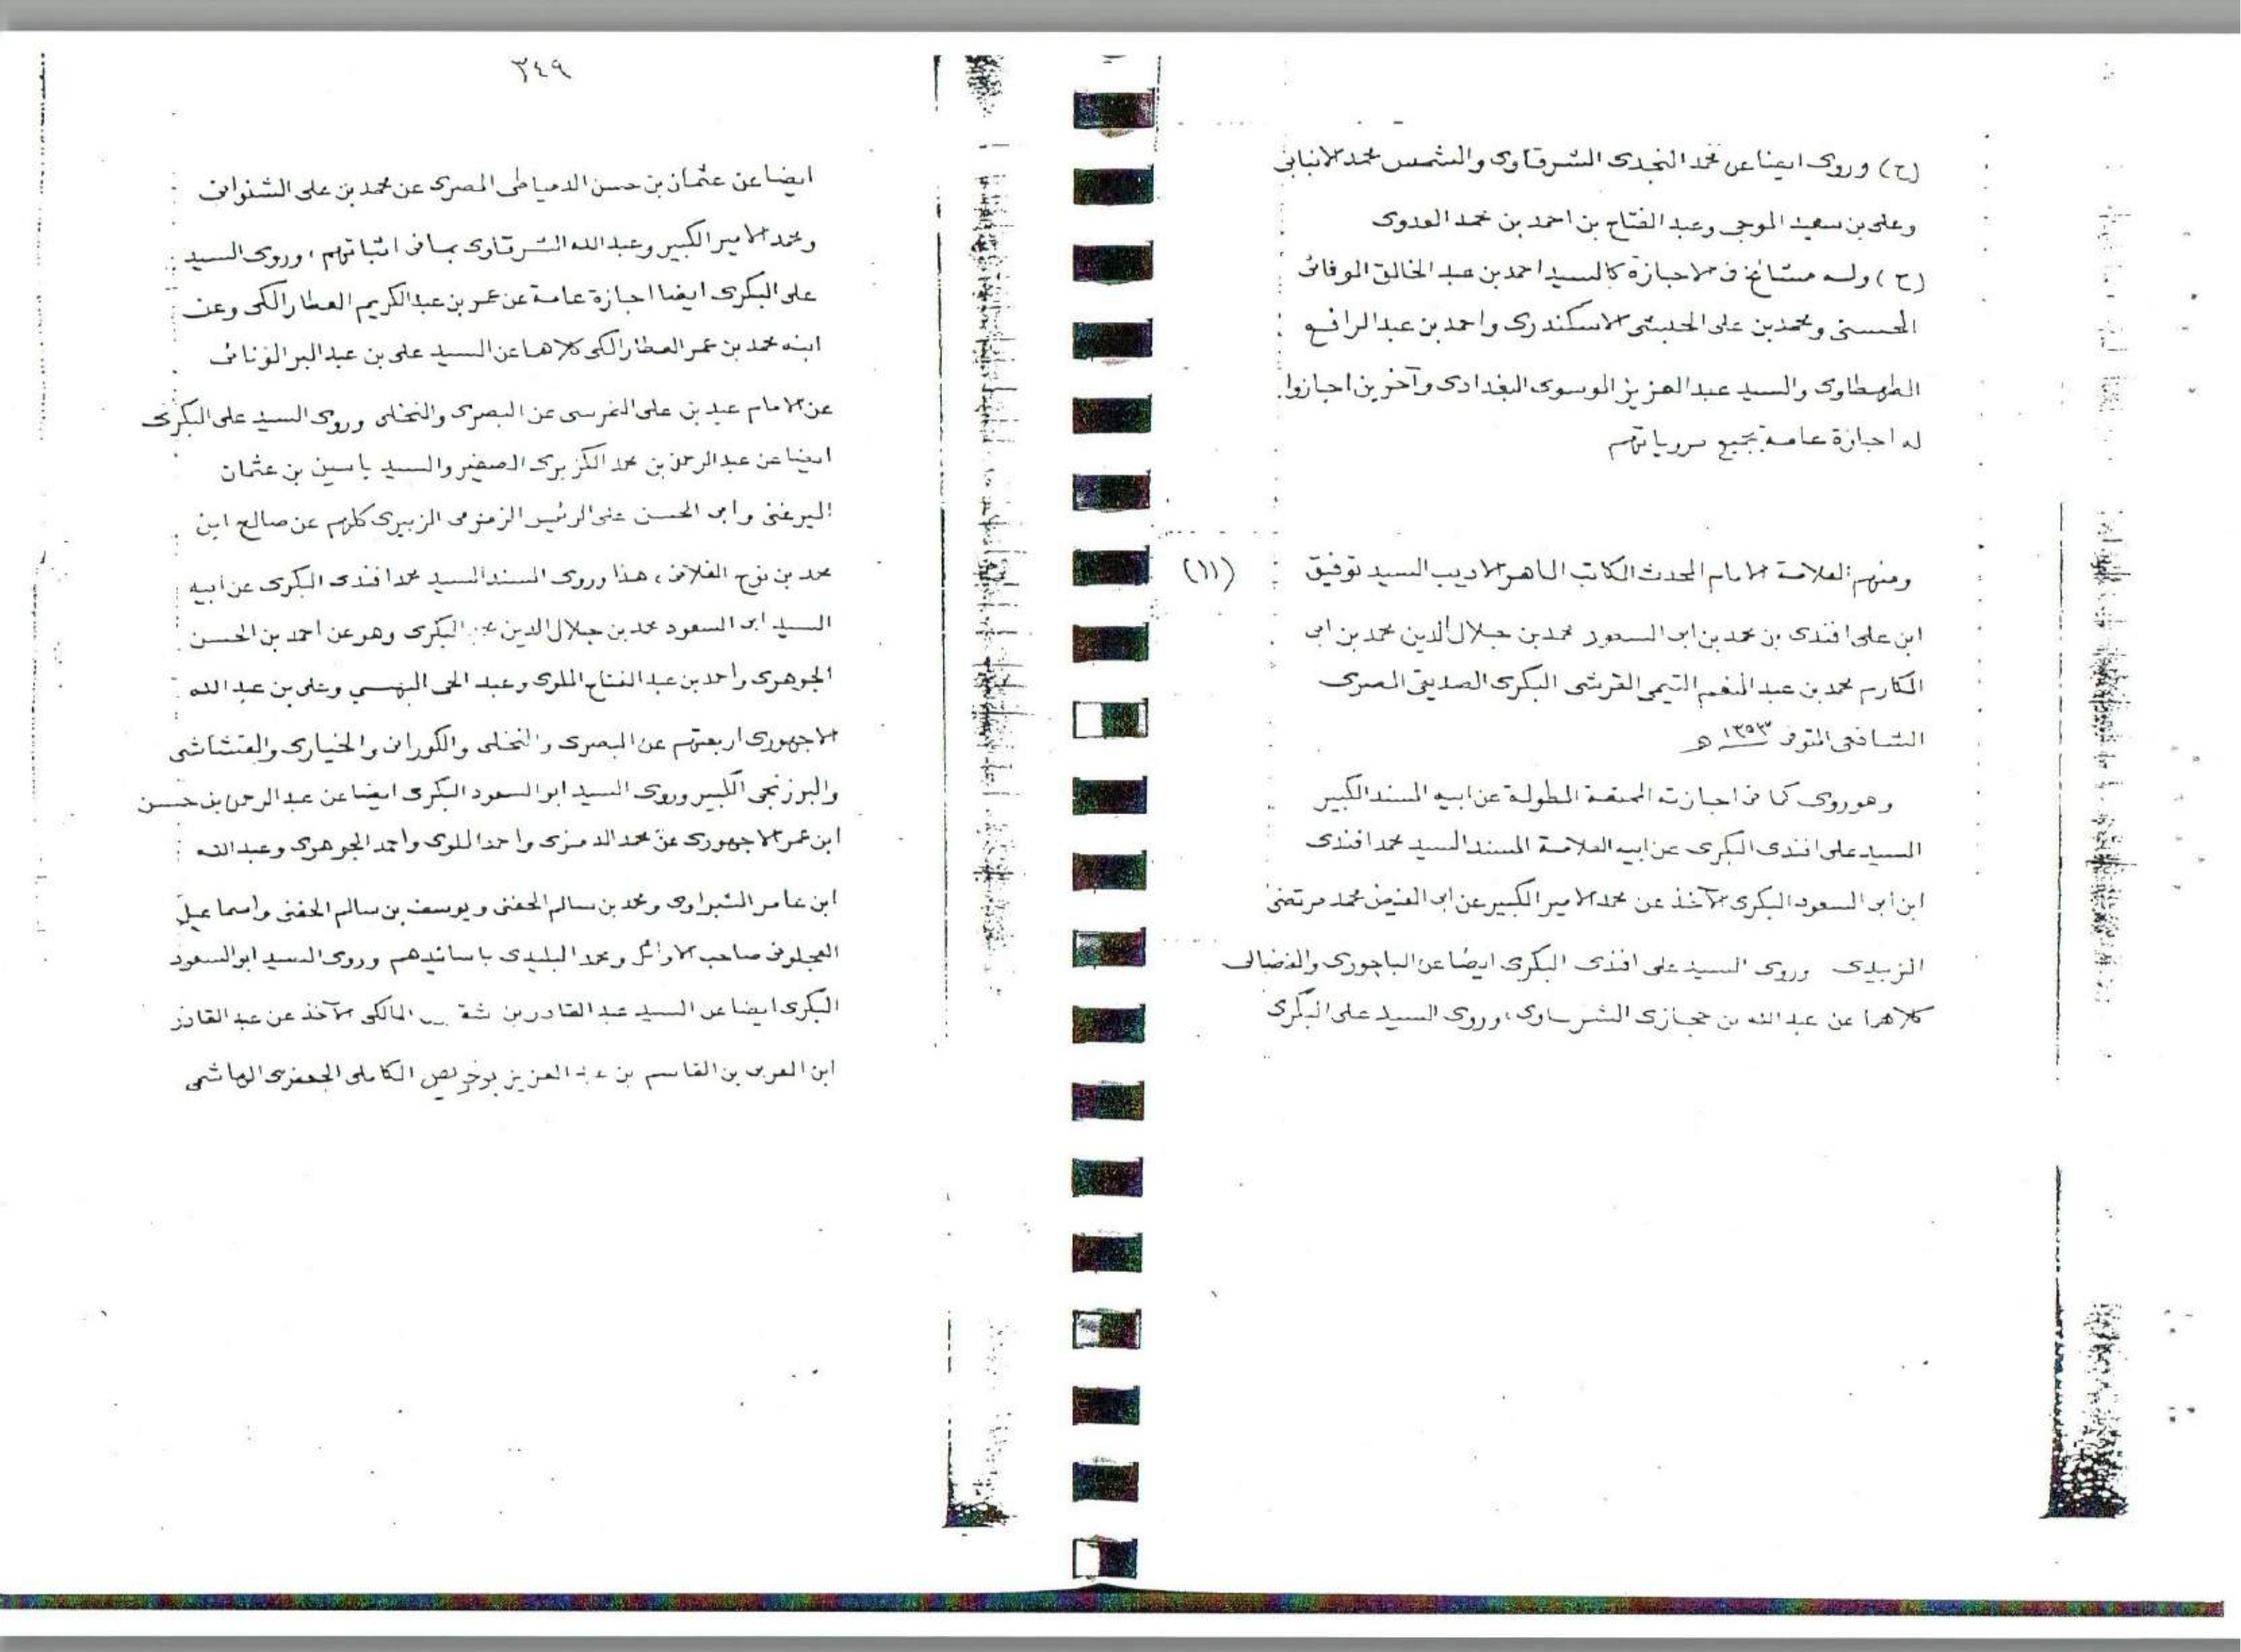 (ح) وروى ايضا عن محمد النجدى الشرقاوى والشمس محمد الانبابى
وعلى بن سعيد الموجى وعبد الفتاح بن احمد بن محمد العدوى
(ح) وله مشائخ فى الاجازة كالسيد احمد بن عبد الخالق الوفائى
الحسنى ومحمد بن على الحبشى الاسكندرى واحمد بن عبد الرافع
الطهطاوى والسيد عبد العزيز الموسوى البغدادى وآخرين اجازوا
له اجازة عامة بجميع مروياتهم
(١١) ومنهم العلامة الامام المحدث الكاتب الماهر الاديب السيد توفيق
ابن على افندى بن محمد بن ابى السعود محمد بن جلال الدين محمد بن ابى
المكارم محمد بن عبد المنعم التيمى القرشى البكرى الصديقى المصرى
الشافعى المتوفى ١٣٥٣ هـ
وهو روى كما فى اجازته المطولة عن ابيه المسند الكبير
السيد على افندى البكرى عن ابيه العلامة المسند السيد محمد افندى
ابن ابى السعود البكرى الآخذ عن محمد الامير الكبير عن ابى الفيض محمد مرتضى
الزبيدى وروى السيد على افندى البكرى ايضا عن الباجورى والفضالى
كلاهما عن عبد الله بن حجازى الشرقاوى، وروى السيد على البكرى
٣٤٩
ايضا عن عثمان بن حسن الدمياطى المصرى عن محمد بن على الشنوانى
ومحمد الامير الكبير وعبد الله الشرقاوى بما فى اثباتهم، وروى السيد
على البكرى ايضا اجازة عامة عن عمر بن عبد الكريم العطار المكى وعن
ابنه محمد بن عمر العطار المكى كلاهما عن السيد على بن عبد البر الونائى
عن الامام عيد بن على النمرسى عن البصرى والنخلى وروى السيد على البكرى
ايضا عن عبد الرحمن بن محمد الكزبرى الصغير والسيد ياسين بن عثمان
الميرغنى وابى الحسن على الرئيس الزمزمى الزبيرى كلهم عن صالح ابن
محمد بن نوح الفلانى، هذا وروى المسند السيد محمد افندى البكرى عن ابيه
السيد ابى السعود محمد بن جلال الدين البكرى وهو عن احمد بن الحسن
الجوهرى واحمد بن عبد الفتاح الملوى وعبد الحى البهنسى وعلى بن عبد الله
الاجهورى اربعتهم عن البصرى والنخلى والكورانى والخيارى والقشاشى
والبرزنجى الكبير وروى السيد ابو السعود البكرى ايضا عن عبد الرحمن بن حسن
ابن عمر الاجهورى عن محمد الدمزى واحمد الملوى واحمد الجوهرى وعبد الله
ابن عامر الشبراوى ومحمد بن سالم الحفنى ويوسف بن سالم الحفنى واسماعيل
العجلونى صاحب الاوائل ومحمد البليدى باسانيدهم وروى السيد ابو السعود
البكرى ايضا عن السيد عبد القادر بن المالكى الآخذ عن عبد القادر
ابن العربى بن القاسم بن عبد العزيز بوخريص الكاملى الجعفرى الهاشمى